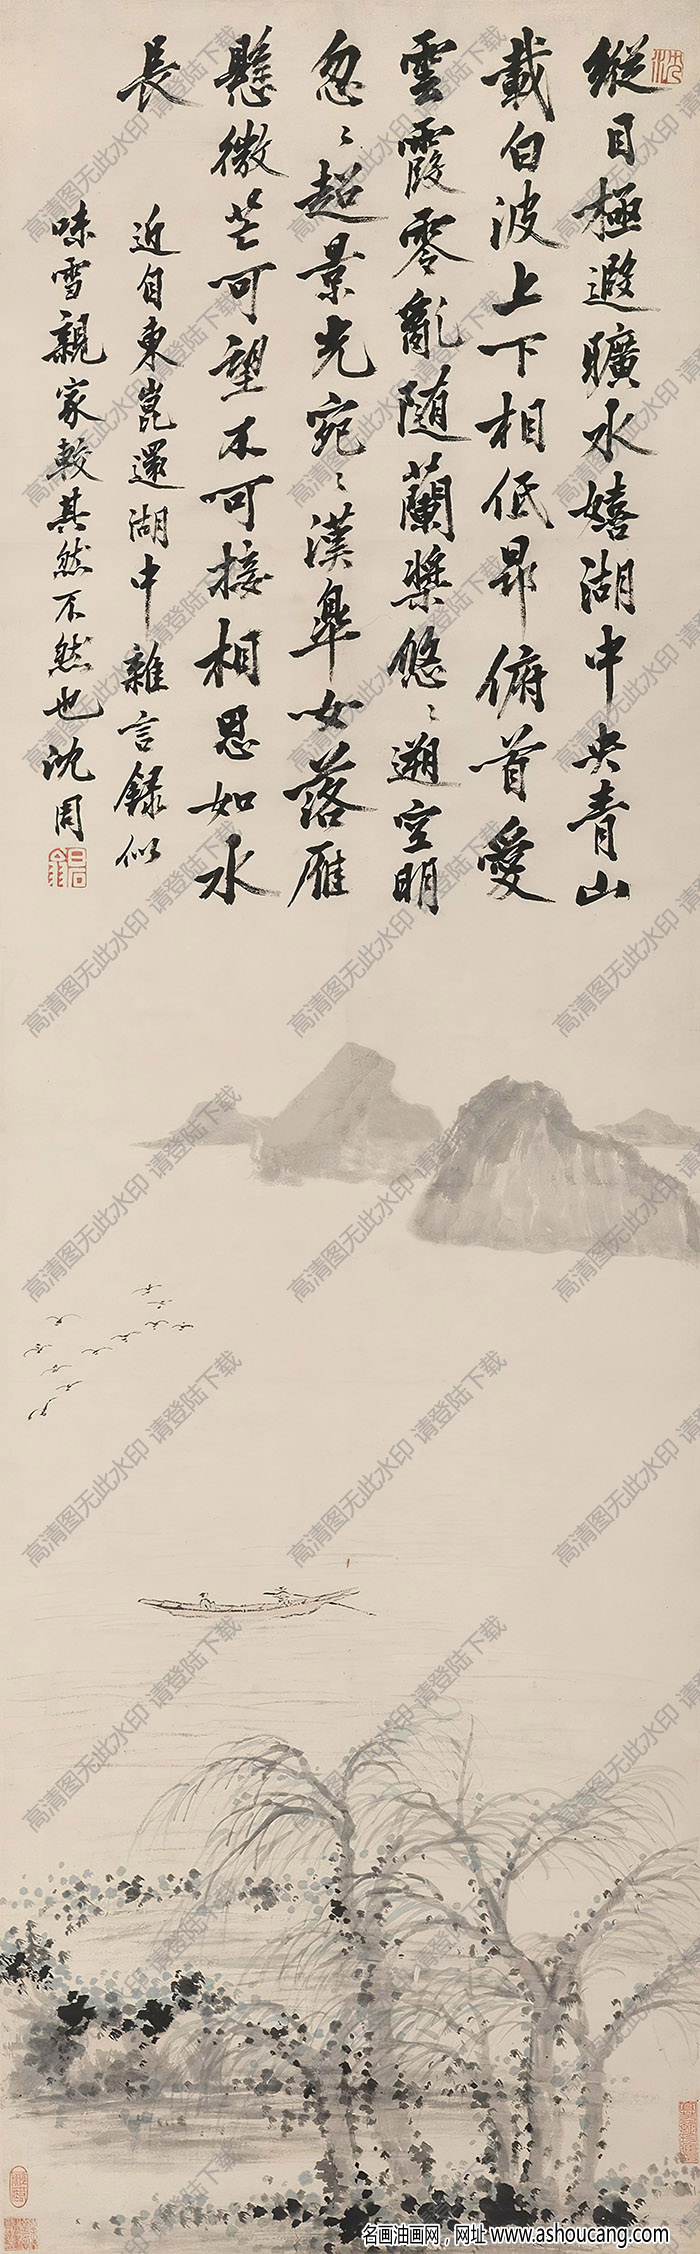 縱目極遐曠水嬉湖中央青山
載白波上下相低昂俯首愛
雲霞零亂随蘭槳悠〻遡空明
忽〻超景光宛〻漢皋女落雁
懸微茫可望不可接相思如水
長
近自東崑還湖中雜言録似
味雪親家較其然不然也沈周
高清图无此水印 请登陆下载
名画油画网，网址 www.ashoucang.com